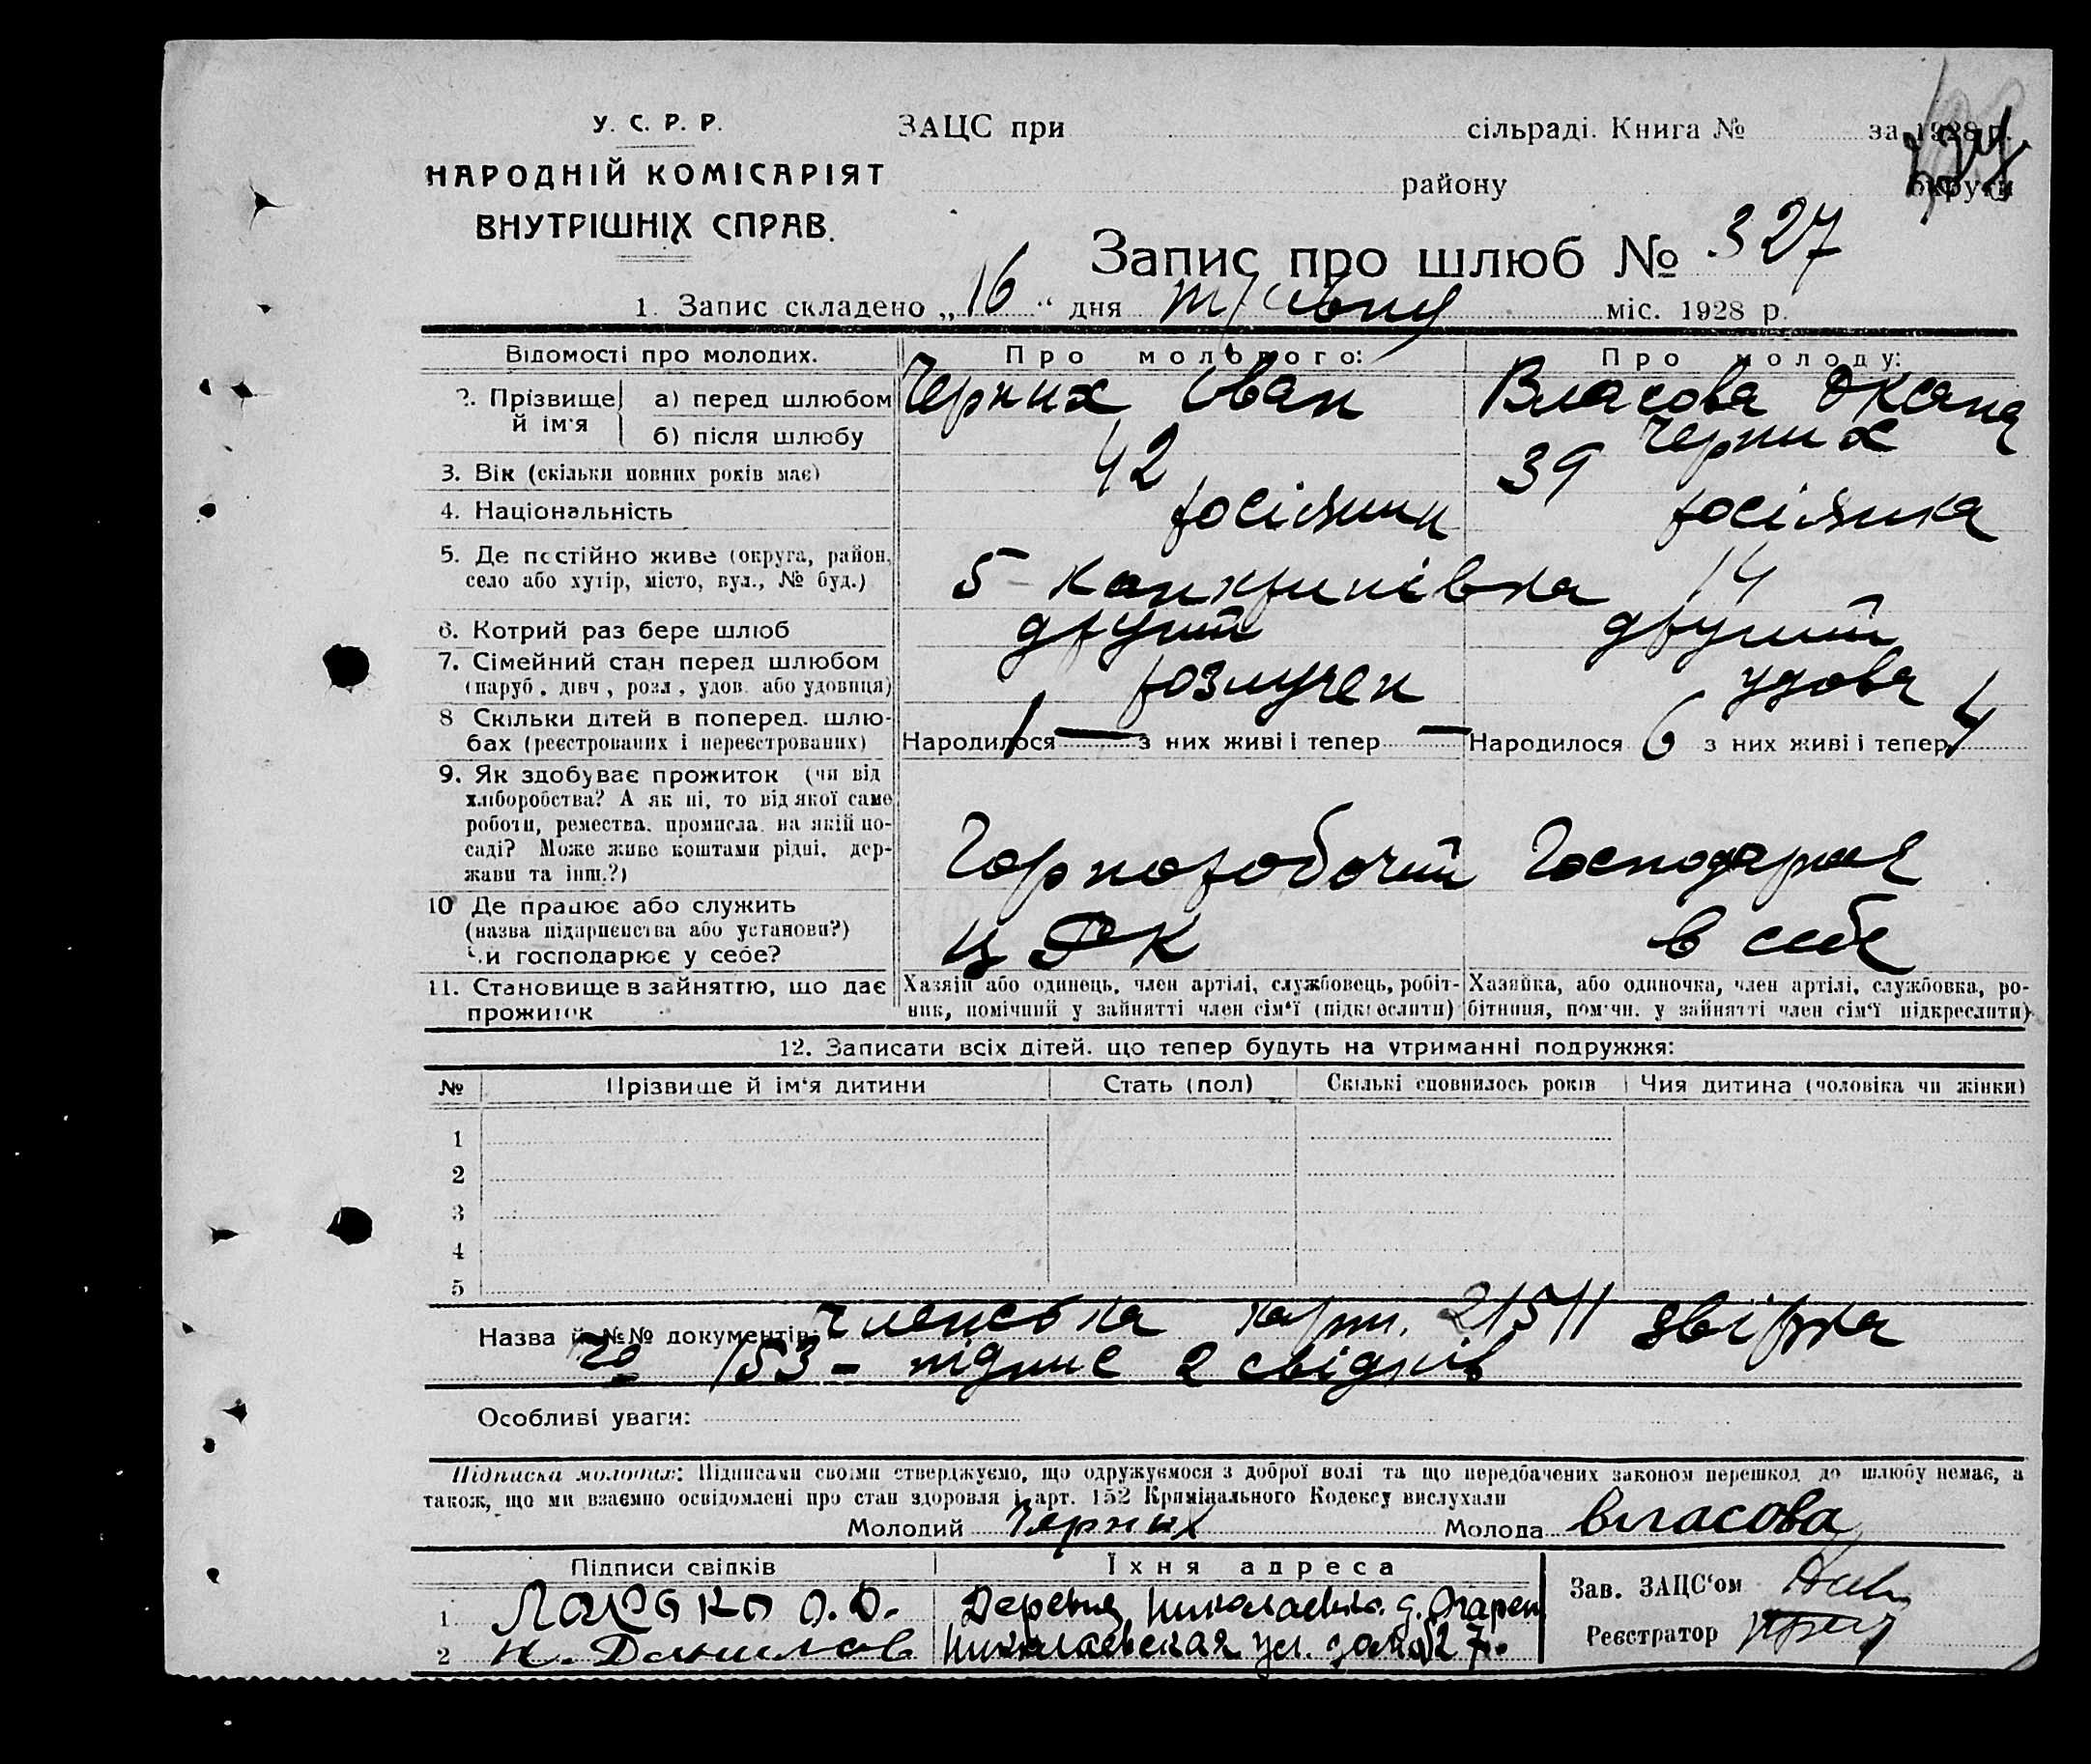 У. С. Р. Р.
НАРОДНІЙ КОМІСАРІЯТ
ВНУТРІШНІХ СПРАВ.
ЗАЦС при сільраді. Книга № за 1928 р.
району округи
Запис про шлюб № 327
1. Запис складено „16“ дня міс. 1928 р.
Відомості про молодих. Про молодого: Про молоду:
2. Прізвище й ім'я а) перед шлюбом Черних Іван Власова Оксана
б) після шлюбу Черних
3. Вік (скільки повних років має) 42 39
4. Національність росіянин росіянка
5. Де постійно живе (округа, район,
село або хутір, місто, вул., № буд.) 5 - Канкринівка 14
6. Котрий раз бере шлюб другий другий
7. Сімейний стан перед шлюбом
(паруб., дівч., розл., удов. або удовиця) розлучен удова
8 Скільки дітей в поперед. шлю-
бах (реєстрованих і нереєстрованих) Народилося 1 — з них живі і тепер — Народилося 6 з них живі і тепер 4
9. Як здобуває прожиток (чи від
хліборобства? А як ні, то від якої саме
роботи, ремества, промисла, на якій по-
саді? Може живе коштами рідні, дер-
жави та інш.?) Горноробочий Господарка
10 Де працює або служить
(назва підприємства або установи?)
Чи господарює у себе? в себе
11. Становище в зайняттю, що дає
прожиток
Хазяїн або одинець, член артілі, службовець, робіт-
ник, помічний у зайнятті член сім'ї (підкреслити)
Хазяйка, або одиночка, член артілі, службовка, ро-
бітниця, помічн. у зайнятті член сім'ї підкреслити)
12. Записати всіх дітей, що тепер будуть на утриманні подружжя:
№ Прізвище й ім'я дитини Стать (пол) Скількі сповнилось років Чия дитина (чоловіка чи жінки)
1
2
3
4
5
Назва й №№ документів: Членська карт. 21511 звірка
153 - підпис 2 свідків
Особливі уваги:
Підписка молодих: Підписами своїми стверджуємо, що одружуємося з доброї волі та що передбачених законом перешкод до шлюбу немає, а
також, що ми взаємно освідомлені про стан здоровля і арт. 152 Кримінального Кодексу вислухали
Молодий Черных Молода власова
Підписи свідків Їхня адреса
1 О.О. Деревня
2 Н. Данилов Николаевская ул. дом
Зав. ЗАЦС'ом
Реєстратор